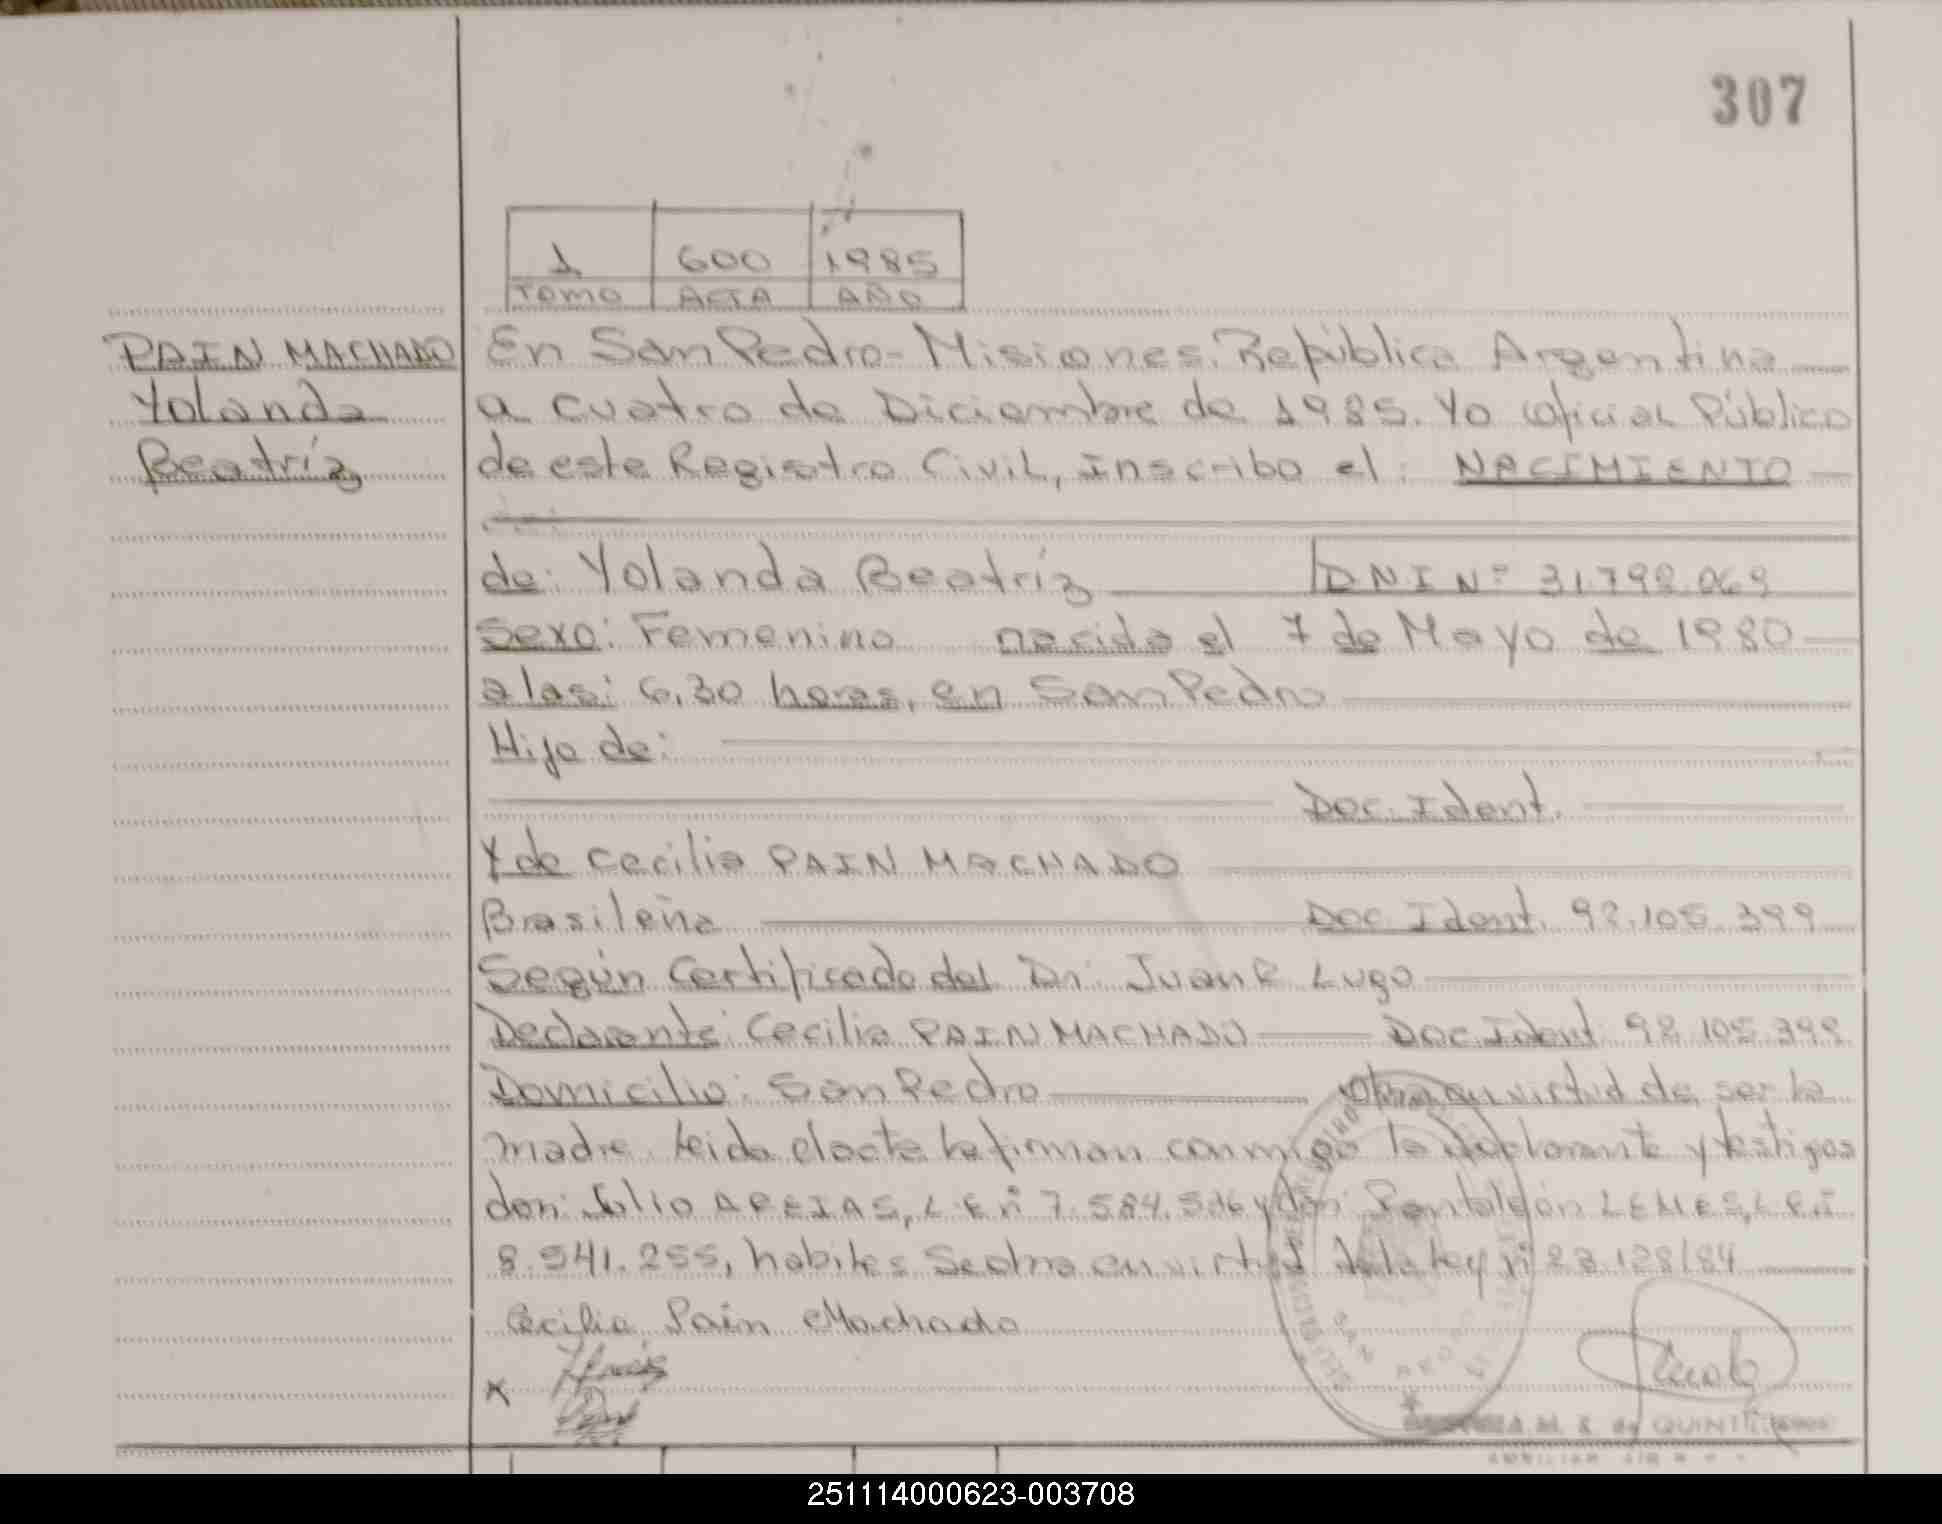 307
1 600 1985
TOMO ACTA AÑO
PAIN MACHADO
Yolanda
Beatríz
En San Pedro - Misiones. República Argentina
a cuatro de Diciembre de 1985. Yo oficial Público
de este Registro Civil, Inscribo el: NACIMIENTO
de: Yolanda Beatríz DNI Nº 31.798.069
Sexo: Femenino nacida el 7 de Mayo de 1980
a las: 6,30 horas, en San Pedro
Hijo de:
Doc. Ident.
Y de Cecilia PAIN MACHADO
Brasileña Doc. Ident. 92.105.399
Según Certificado del Dr: Juan R Lugo
Declarante: Cecilia PAIN MACHADO Doc Ident 92.105.399
Domicilio: San Pedro Obra en virtud de ser la
madre. Leida el acta la firman conmigo la declarante y testigos
don: Julio AREIAS, L.E nº 7.584.516 y don: Pantaleón LEMES, L.E nº
8.541.255, habiles Se obra en virtud de la Ley nº 23.128/84
Cecilia Pain Machado
SAN PEDRO
M. S. de QUINTI
251114000623-003708